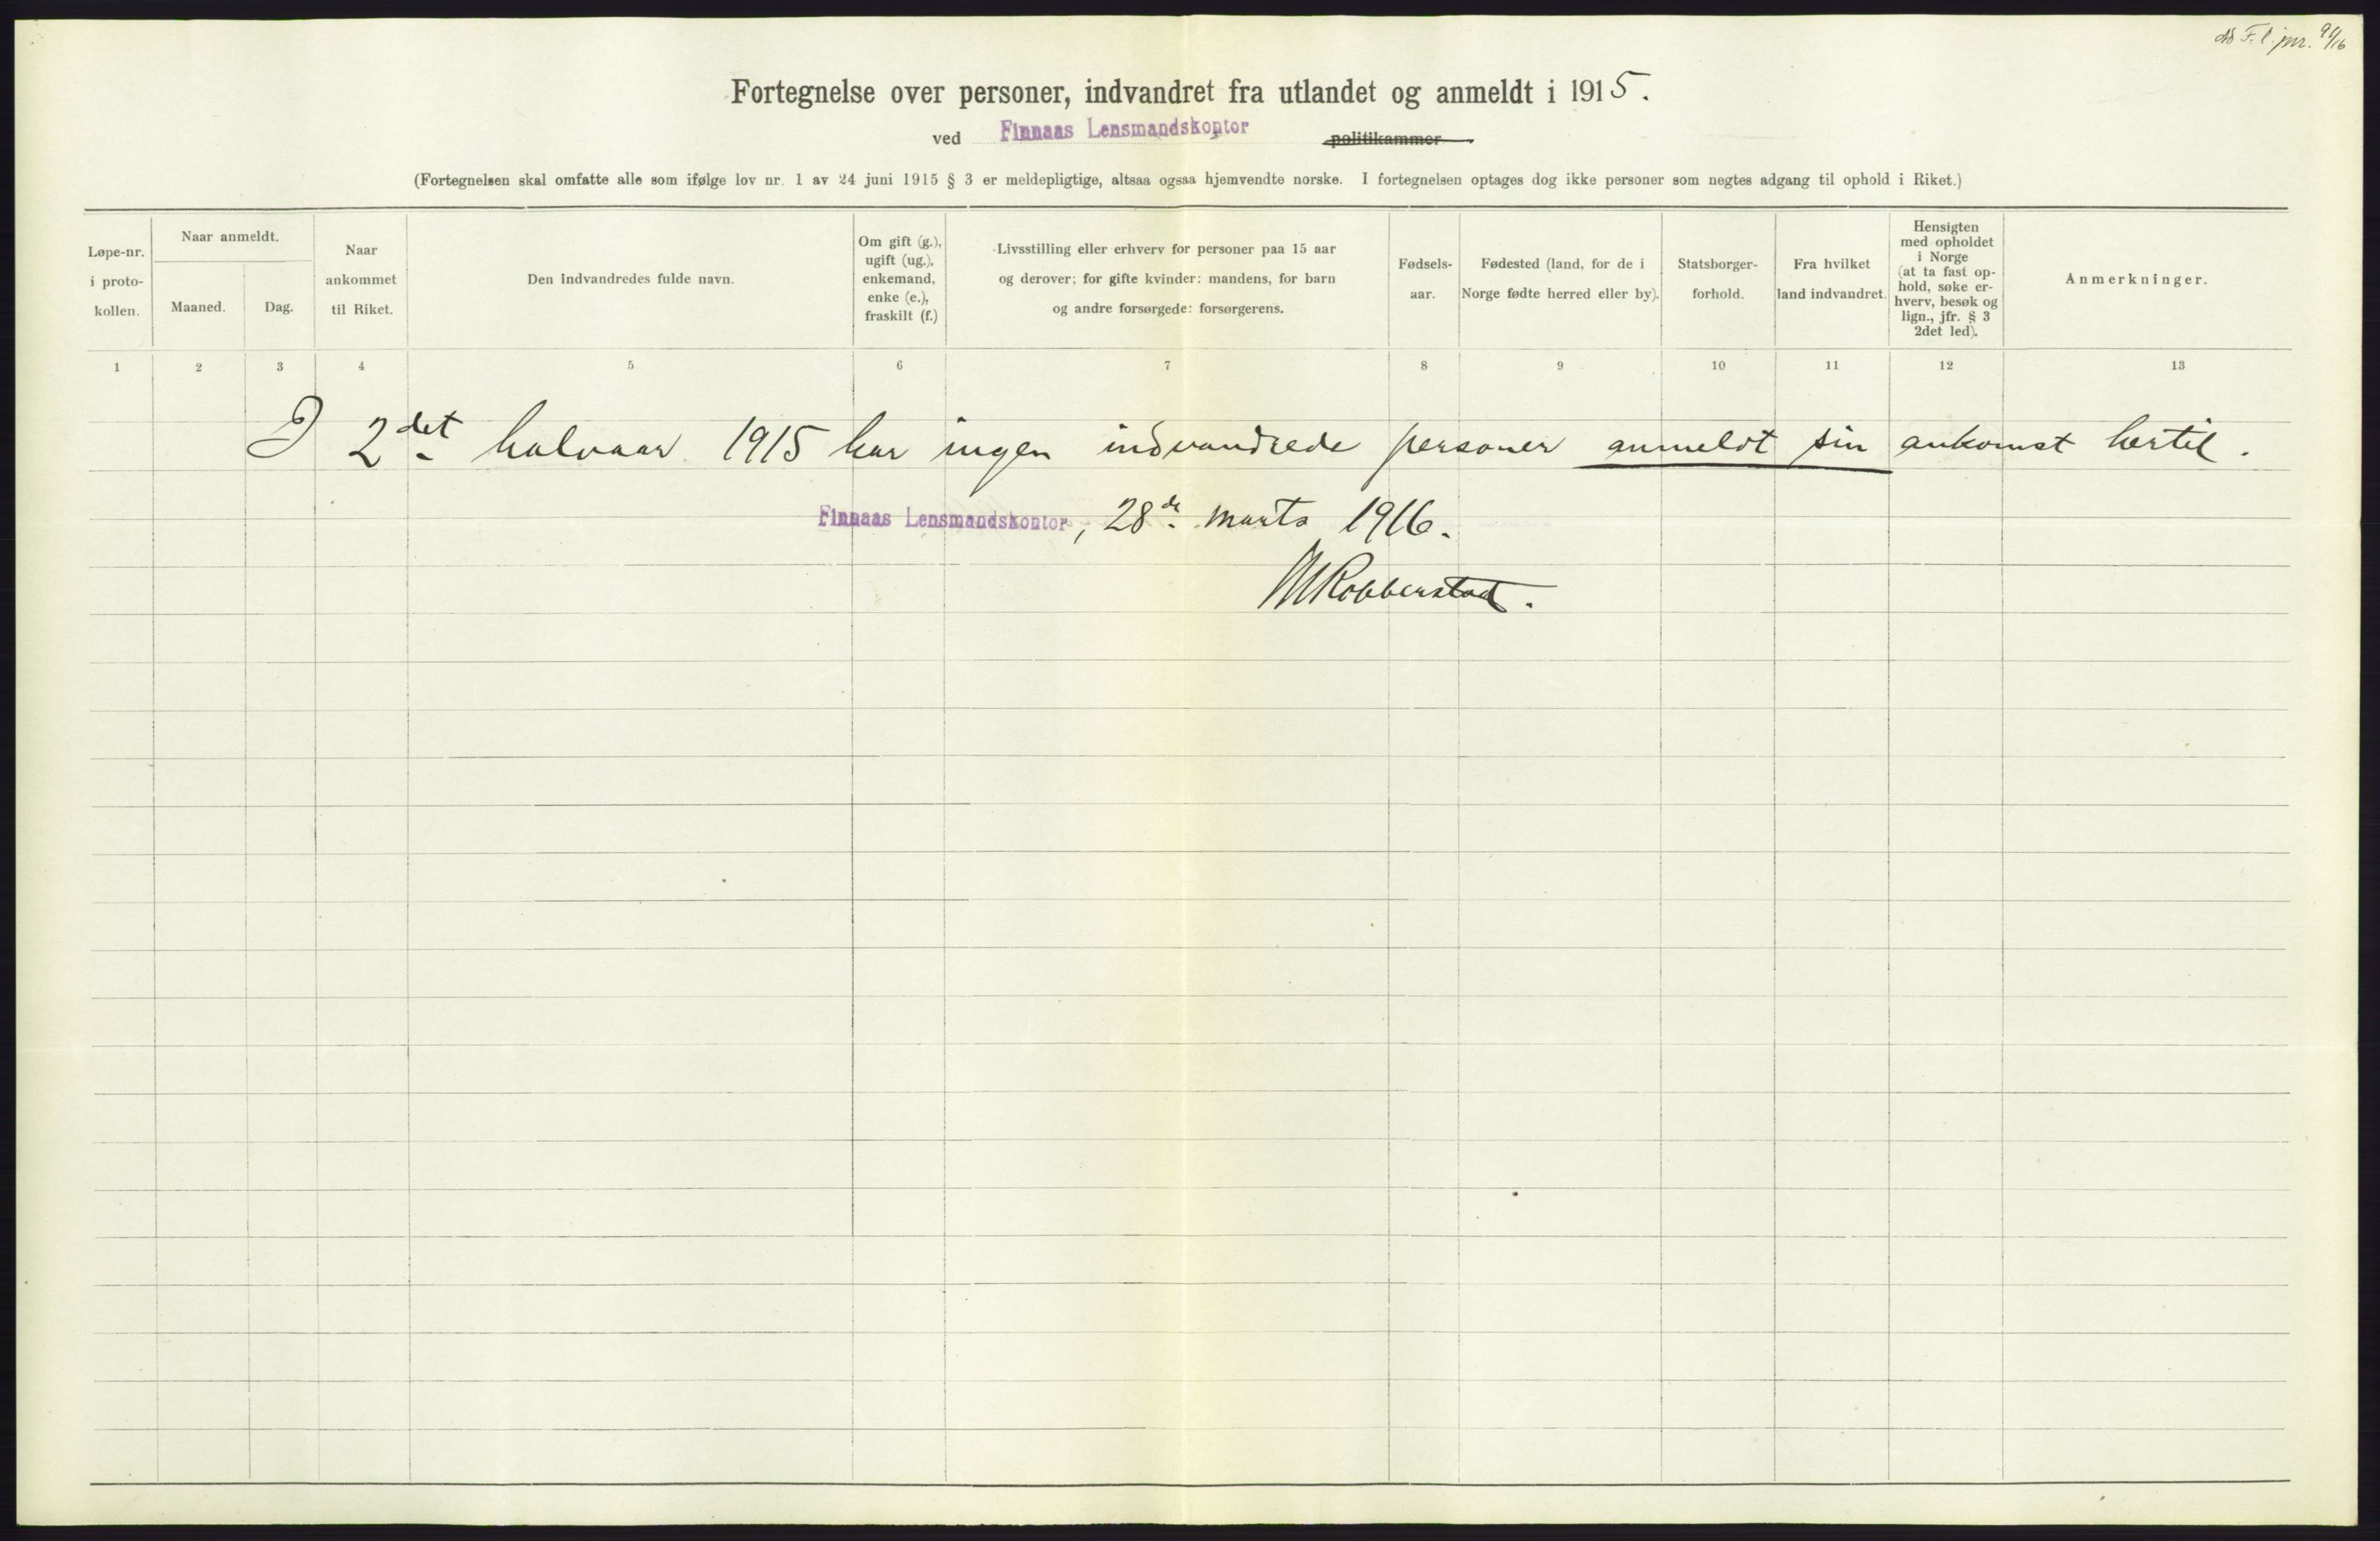 F. l. jnr.
Fortegnelse over personer, indvandret fra utlandet og anmeldt i 1915.
ved Finnaas Lensmandskontor politikammer
(Fortegnelsen skal omfatte alle som ifølge lov nr. 1 av 24 juni 1915 § 3 er meldepligtige, altsaa ogsaa hjemvendte norske. I fortegnelsen optages dog ikke personer som negtes adgang til ophold i Riket.)
Løpe-nr.
i proto-
kollen.
Naar anmeldt.
Maaned.
Dag.
Naar
ankommet
til Riket.
Den indvandredes fulde navn.
Om gift (g.),
ugift (ug.),
enkemand,
enke (e.),
fraskilt (f.)
Livsstilling eller erhverv for personer paa 15 aar
og derover; for gifte kvinder: mandens, for barn
og andre forsørgede: forsørgerens.
Fødsels-
aar.
Fødested (land, for de i
Norge fødte herred eller by).
Statsborger-
forhold.
Fra hvilket
land indvandret.
Hensigten
med opholdet
i Norge
(at ta fast op-
hold, søke er-
hverv, besøk og
lign., jfr. § 3
2det led).
Anmerkninger.
1 2 3 4 5 6 7 8 9 10 11 12 13
I 2det halvaar 1915 har ingen indvandrede personer anmeldt sin ankomst hertil.
Finnaas Lensmandskontor, 28de marts 1916.
M Robberstad.